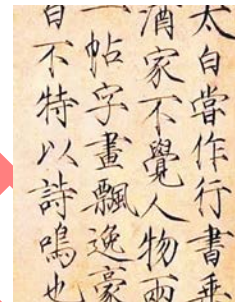 太白嘗作行書乘
酒家不覺人物兩
一帖字畫飄逸豪
白不特以詩鳴也